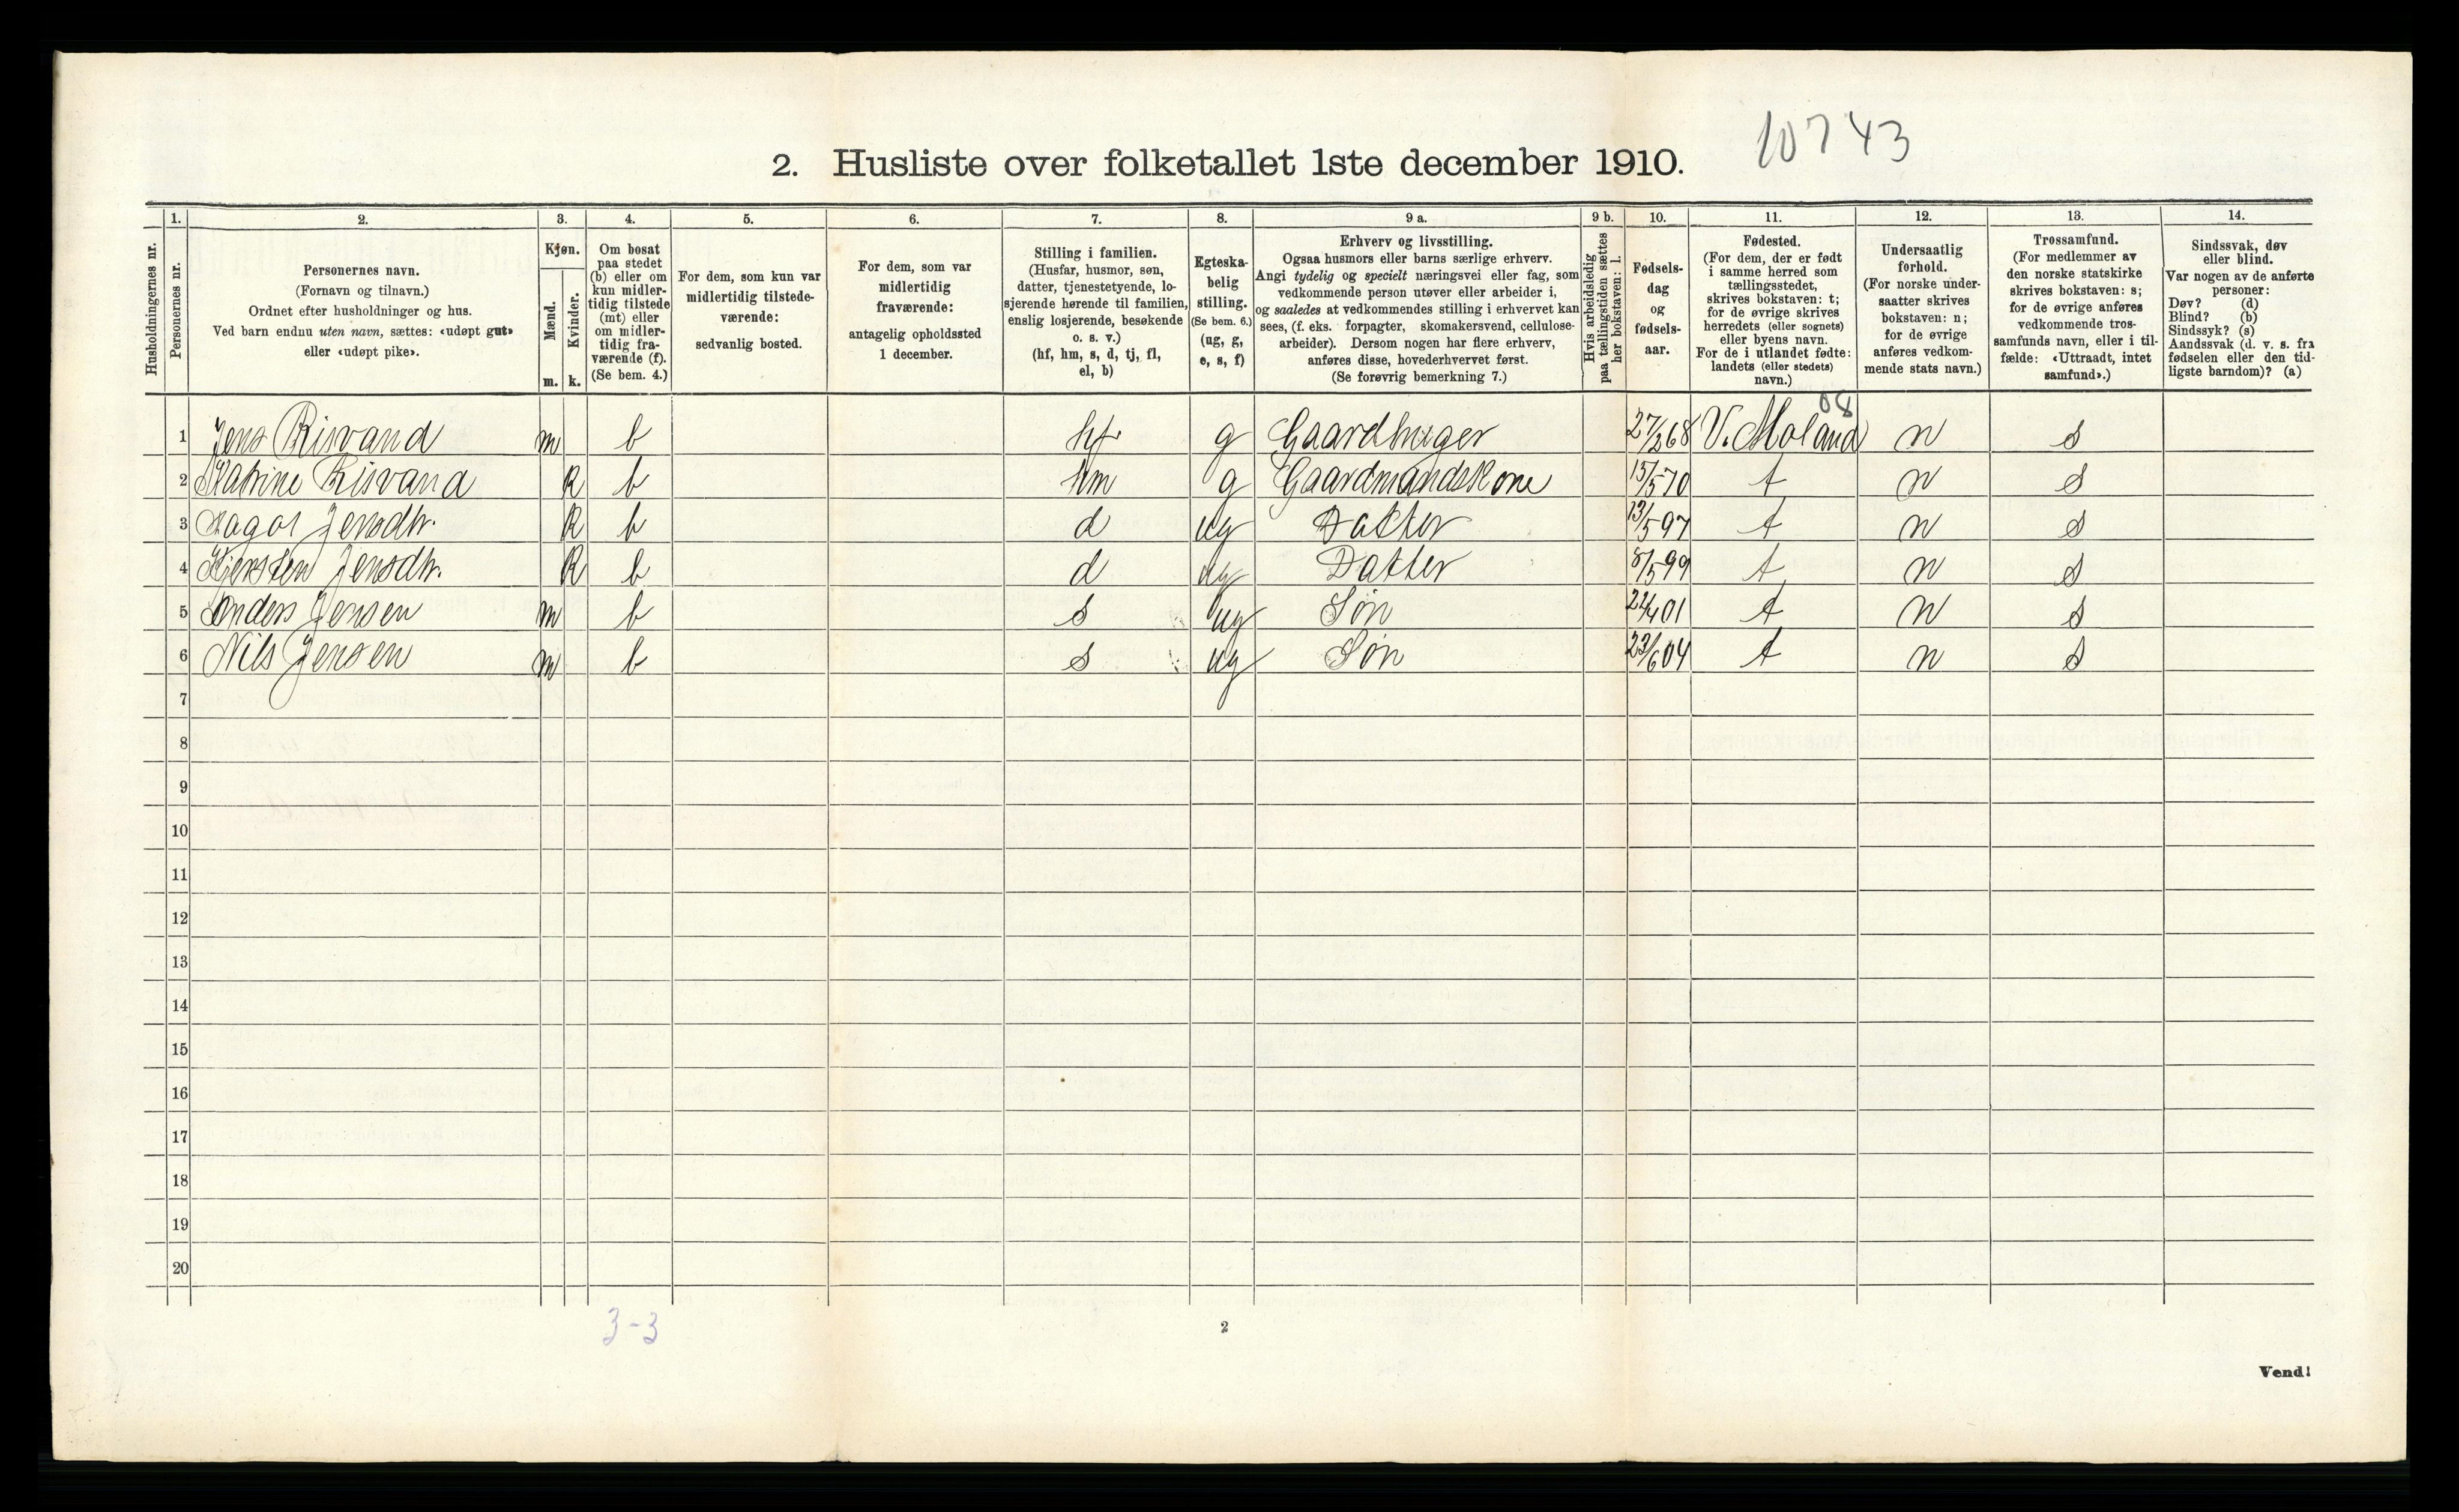 10743
2. Husliste over folketallet 1ste december 1910.
Husholdningernes nr.
1.
Personernes nr.
2.
Personernes navn.
(Fornavn og tilnavn.)
Ordnet efter husholdninger og hus.
Ved barn endnu uten navn, sættes: «udøpt gut»
eller «udøpt pike».
3.
Kjøn.
Mænd.
m.
Kvinder.
k.
4.
Om bosat
paa stedet
(b) eller om
kun midler-
tidig tilstede
(mt) eller
om midler-
tidig fra-
værende (f).
(Se bem. 4.)
5.
For dem, som kun var
midlertidig tilstede-
værende:
sedvanlig bosted.
6.
For dem, som var
midlertidig
fraværende:
antagelig opholdssted
1 december.
7.
Stilling i familien.
(Husfar, husmor, søn,
datter, tjenestetyende, lo-
sjerende hørende til familien,
enslig losjerende, besøkende
o. s. v.)
(hf, hm, s, d, tj, fl,
el, b)
8.
Egteska-
belig
stilling.
(Se bem. 6.)
(ug, g,
e, s, f)
9 a.
Erhverv og livsstilling.
Ogsaa husmors eller barns særlige erhverv.
Angi tydelig og specielt næringsvei eller fag, som
vedkommende person utøver eller arbeider i,
og saaledes at vedkommendes stilling i erhvervet kan
sees, (f. eks. forpagter, skomakersvend, cellulose-
arbeider). Dersom nogen har flere erhverv,
anføres disse, hovederhvervet først.
(Se forøvrig bemerkning 7.)
9 b.
Hvis arbeidsledig
paa tællingstiden sættes
her bokstaven: l.
10.
Fødsels-
dag
og
fødsels-
aar.
11.
Fødested.
(For dem, der er født
i samme herred som
tællingsstedet,
skrives bokstaven: t;
for de øvrige skrives
herredets (eller sognets)
eller byens navn.
For de i utlandet fødte:
landets (eller stedets)
navn.)
12.
Undersaatlig
forhold.
(For norske under-
saatter skrives
bokstaven: n;
for de øvrige
anføres vedkom-
mende stats navn.)
13.
Trossamfund.
(For medlemmer av
den norske statskirke
skrives bokstaven: s;
for de øvrige anføres
vedkommende tros-
samfunds navn, eller i til-
fælde: «Uttraadt, intet
samfund».)
14.
Sindssvak, døv
eller blind.
Var nogen av de anførte
personer:
Døv? (d)
Blind? (b)
Sindssyk? (s)
Aandssvak (d. v. s. fra
fødselen eller den tid-
ligste barndom)? (a)
08
1 Jens Risvand m b hf g Gaardbruger 27/2 68 V. Moland n s
2 Katrine Risvand k b hm g Gaardmandskone 15/5 70 t n s
3 Aagot Jensdtr. k b d ug Datter 13/5 97 t n s
4 Kjersten Jensdtr. k b d ug Datter 8/5 99 t n s
5 Anders Jensen m b s ug Søn 22/4 01 t n s
6 Nils Jensen m b s ug Søn 23/6 04 t n s
7
8
9
10
11
12
13
14
15
16
17
18
19
20
3-3
2
Vend!